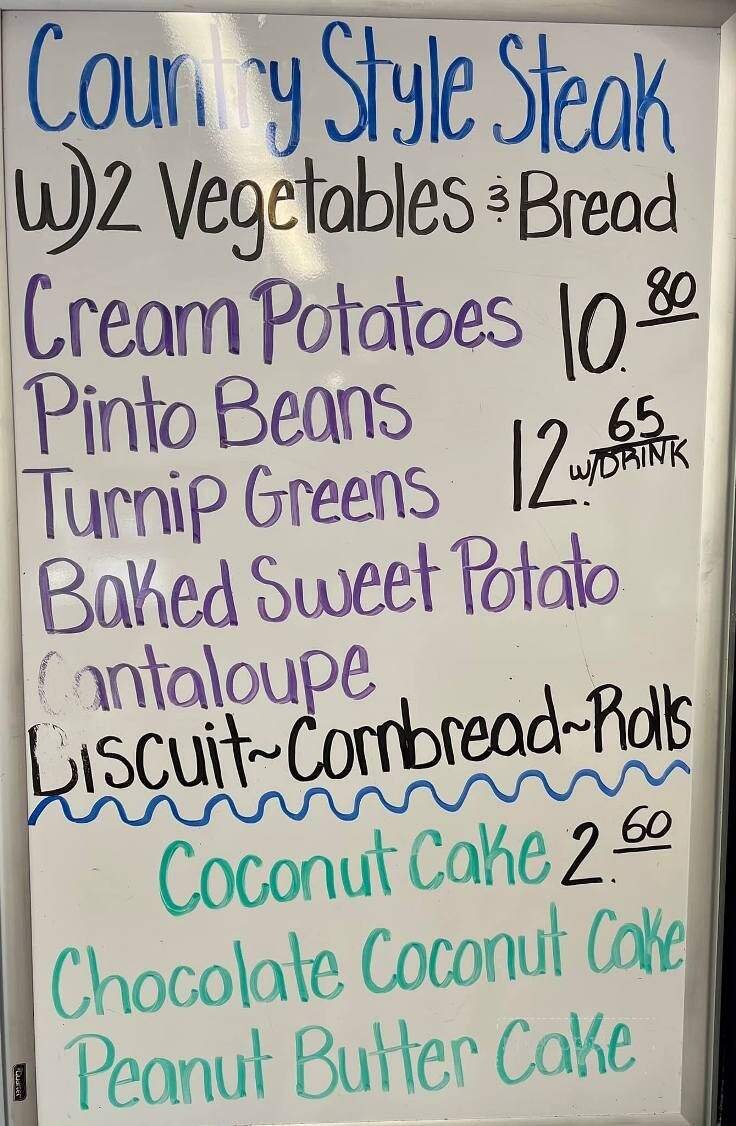 Country Style Steak
W)2 Vegetables & Bread
Cream Potatoes 10.80
Pinto Beans
12.65
w/DRINK
Turnip Greens
Baked Sweet Potato
Cantaloupe
Biscuit~Cornbread~Rolls
Coconut Cake 2.60
Chocolate Coconut Cake
Peanut Butter Cake